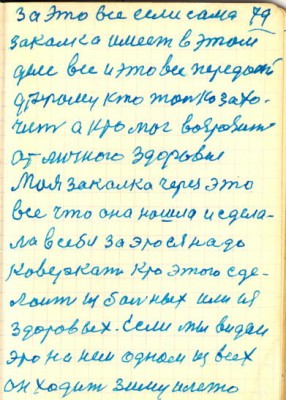 за это все если сама 79
закалка имеет в этом
деле все и это все передает
другому кто только захо-
чит а кто мог возразит
от личного здоровье
Моя закалка через это
все что она нашла и сдела-
ла в себя за это ся надо
коверкать кто этого сде-
лает из больных или из
здоровых. Если мы видем
это на нем одном из всех
он ходит зиму и лето